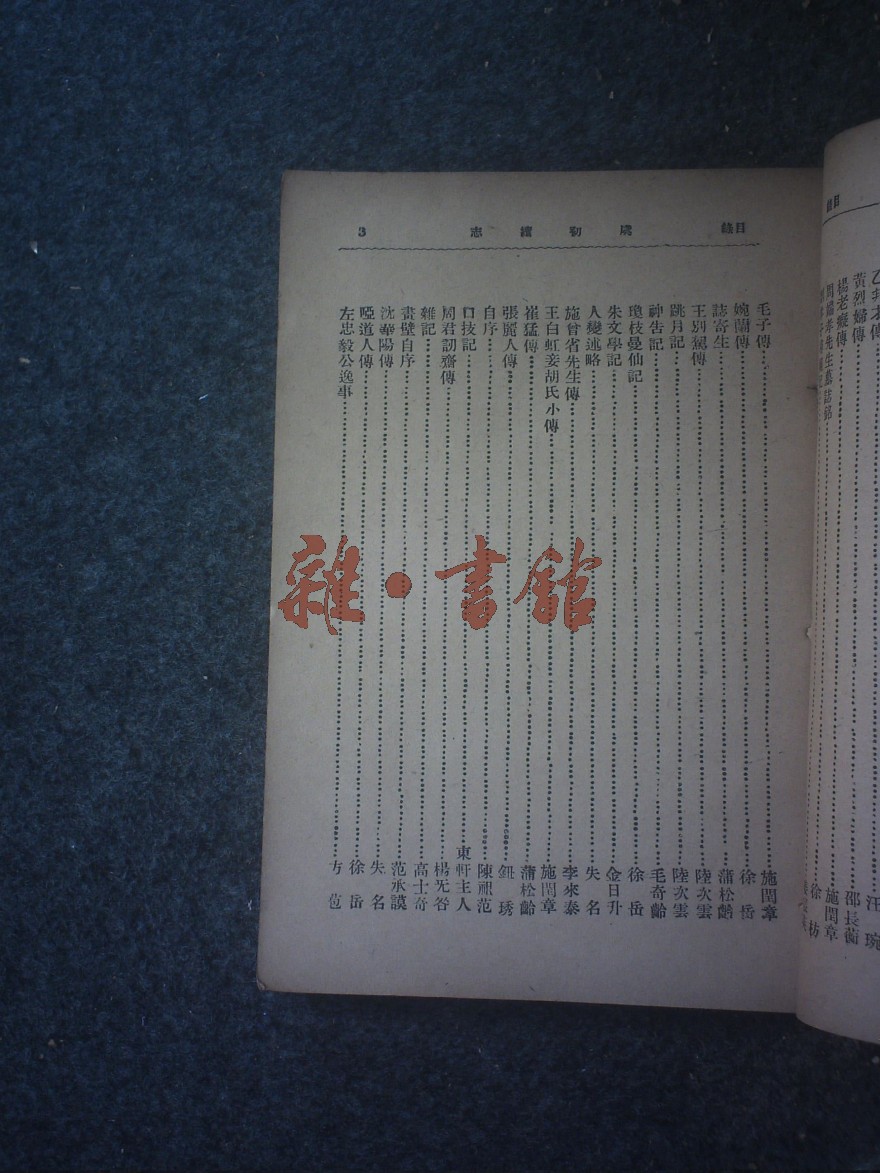 目錄
乙邦才傳 汪琬
黃烈婦傳 邵長蘅
楊老癡傳 施閏章
周端孝先生墓誌銘 徐枋
目錄 虞初續志 3
毛子傳 施閏章
婉蘭傳 徐岳
誌寄生 蒲松齡
王別駕傳 陸次雲
跳月記 陸次雲
神告記 毛奇齡
瓊枝曼仙記 徐岳
朱文學記 金日升
人變述略 失名
施曾省先生傳 李來泰
王白虹妾胡氏小傳 施閏章
崔猛傳 蒲松齡
張麗人傳 鈕琇
自序 陳祖范
口技記 東軒主人
周君韌齋傳 楊旡谷
雜記 高士奇
畫壁自序 范承謨
沈華陽傳 失名
啞道人傳 徐岳
左忠毅公逸事 方苞
雜·書館